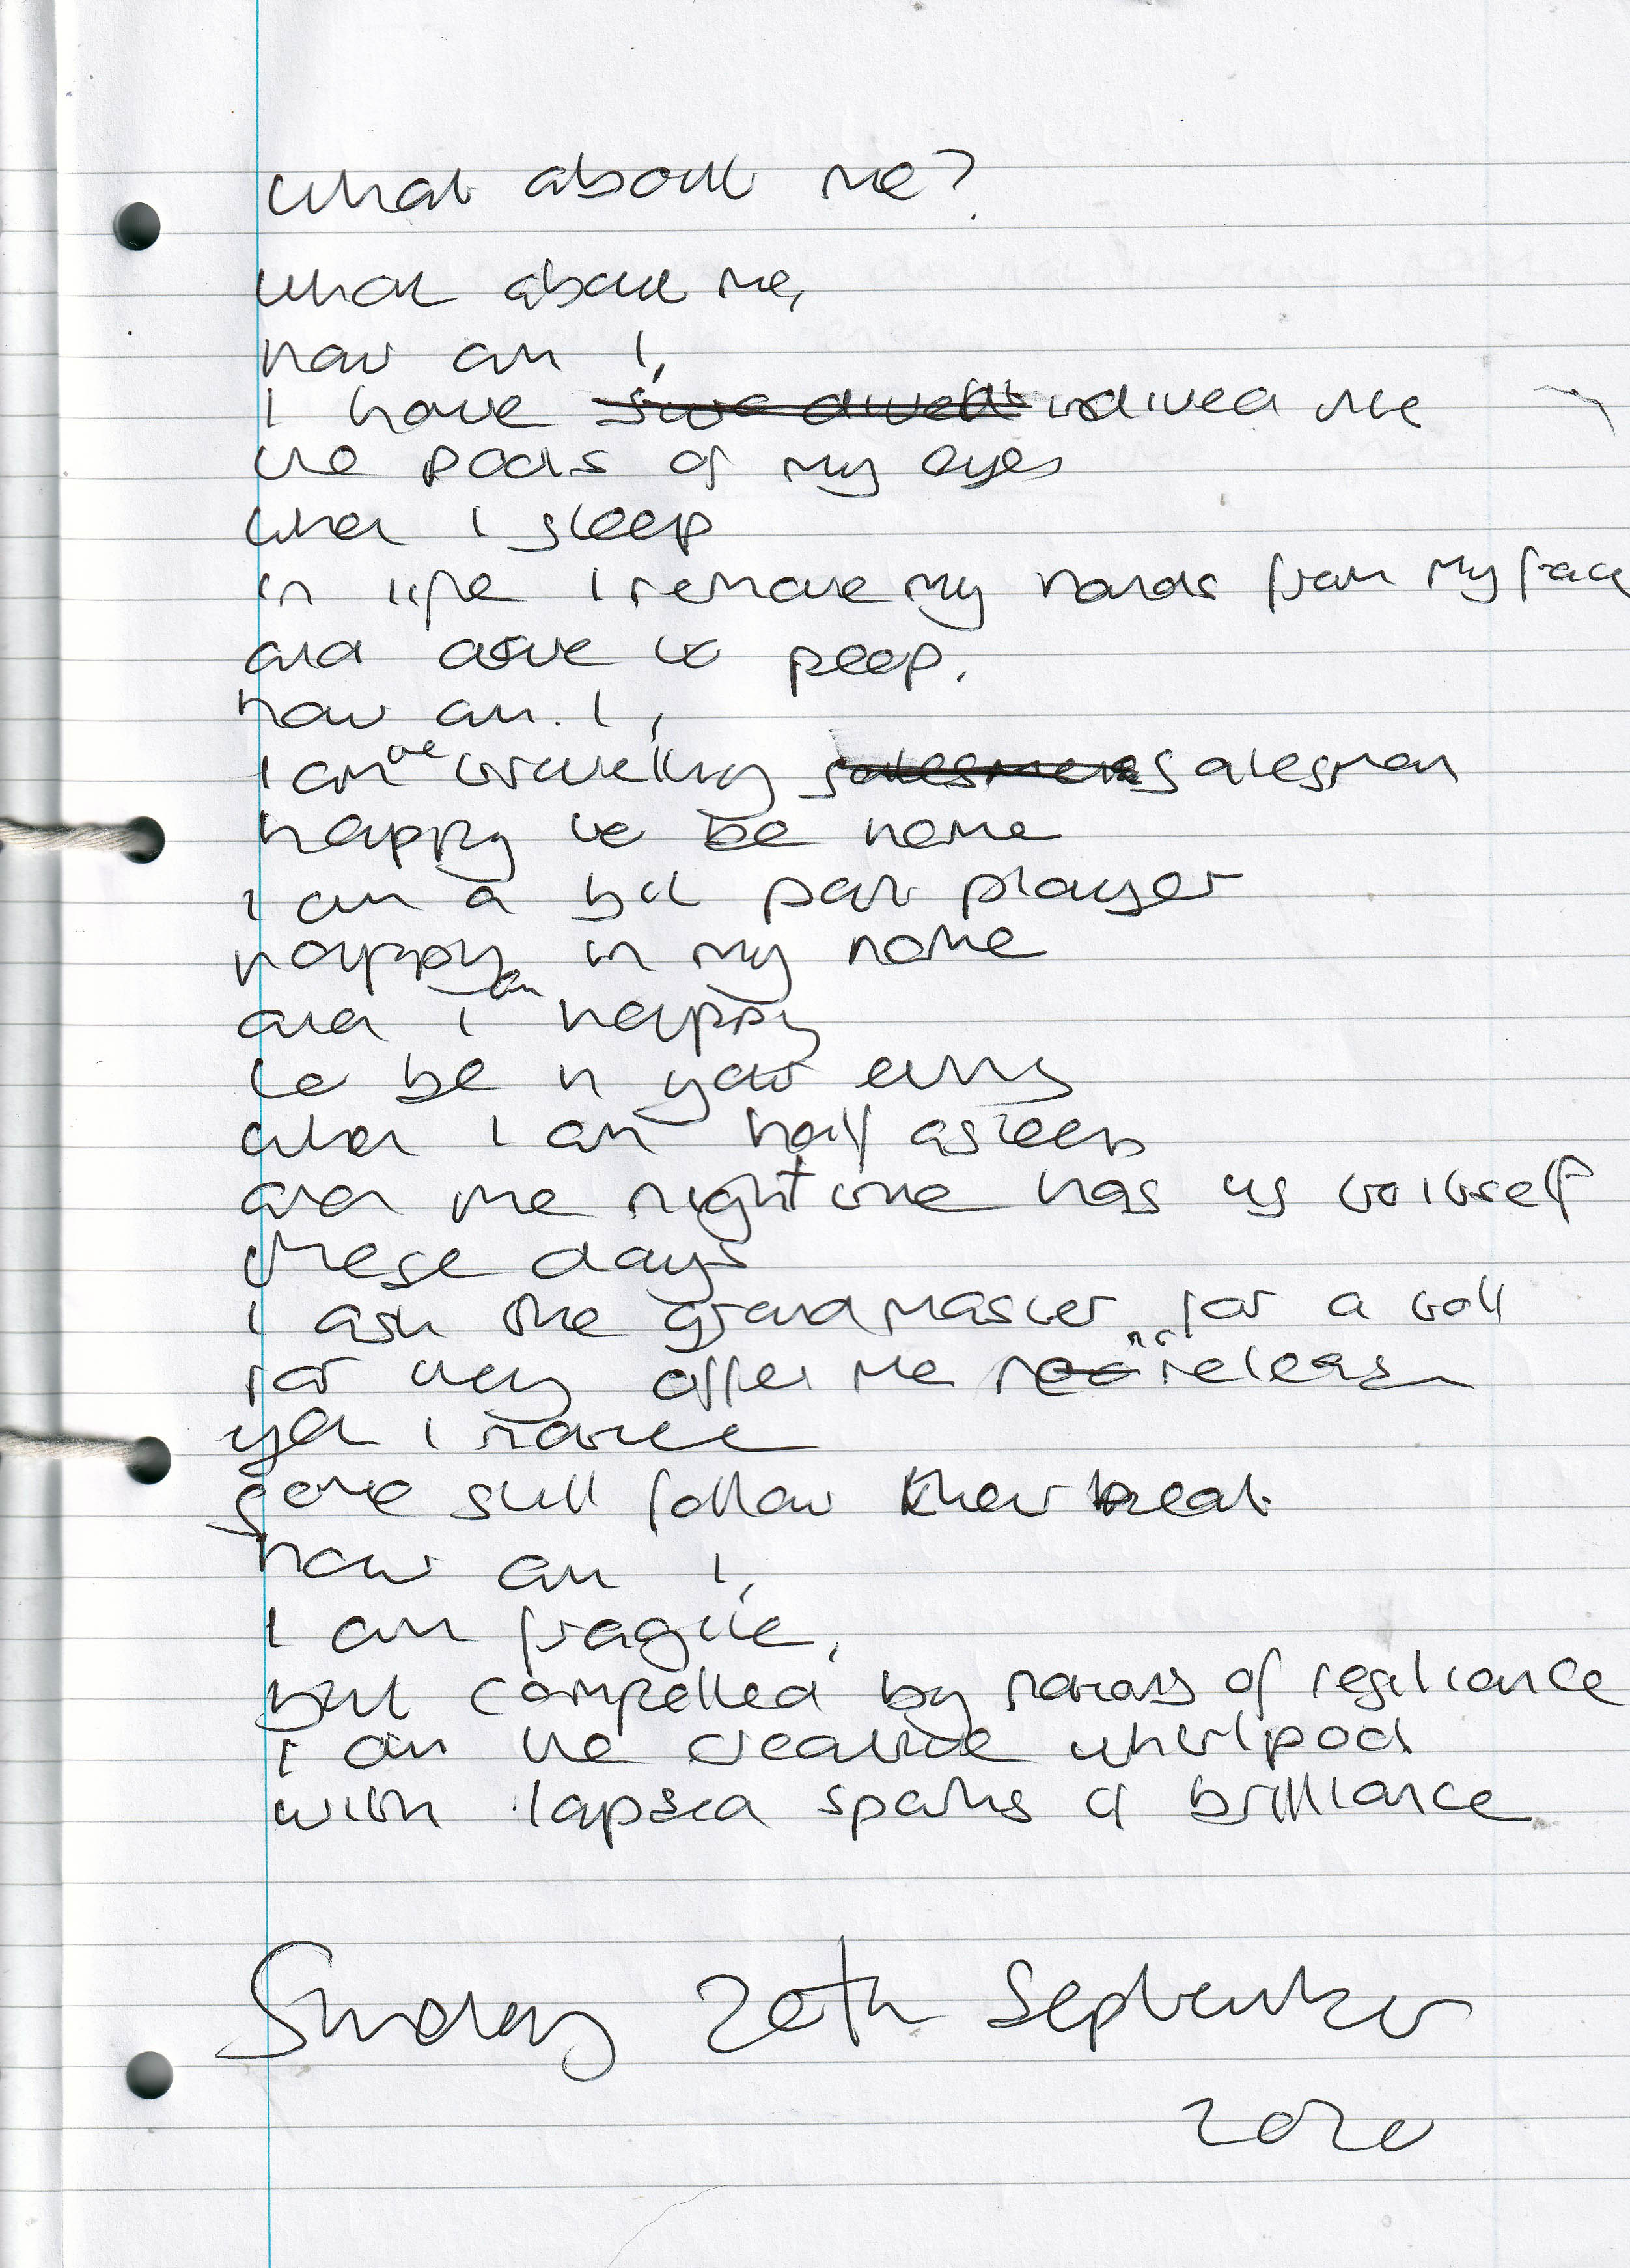 what about me?
what about me,
how am I,
I have indived me
the pools of my eyes
when I sleep
in life I remove my hands from my face
and dove to peep.
how am I,
I am the travelling salesman
happy to be home
I am a bit part player
happy in my home
and I am happy
to be in your arms
when I am half asleep
and the nighttime has us to itself
these days
I ask the grandmaster for a
for they offer me no release
yet I
some still follow their beat
how am I,
I am fragile,
but compelled by of resiliance
I am the creative whirlpool
with lapsed sparks of brilliance
Sunday 20th September
2020